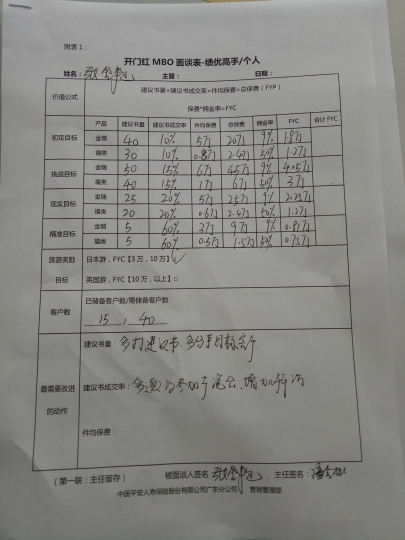 附表1：
开门红 MBO 面谈表-绩优高手/个人
姓名： 主管： 日期：
价值公式 建议书量×建议书成交率×件均保费=总保费（FYP）
保费*佣金率=FYC
产品 建议书量 建议书成交率 件均保费 总保费 佣金率 FYC 合计 FYC
初定目标 金瑞 40 10% 5万 20万 9% 1.8万
福类 30 10% 0.8万 2.4万 50% 1.2万
挑战目标 金瑞 50 15% 6万 45万 9% 4.05万
福类 40 15% 1万 6万 50% 3万
现实目标 金瑞 25 20% 5万 25万 9% 2.25万
福类 20 20% 0.6万 2.4万 50% 1.2万
精准目标 金瑞 5 60% 3万 9万 9% 0.81万
福类 5 60% 0.5万 1.5万 50% 0.75万
旅游奖励 日本游，FYC【3万，10万】☑
目标 英国游，FYC【10万，以上】□
客户数 已储备客户数/需储备客户数
15 , 40
最需要改进的动作 建议书量：多打建议书
建议书成交率：
件均保费：
（第一联：主任留存） 被面谈人签名 主任签名：
中国平安人寿保险股份有限公司广东分公司 营销管理部